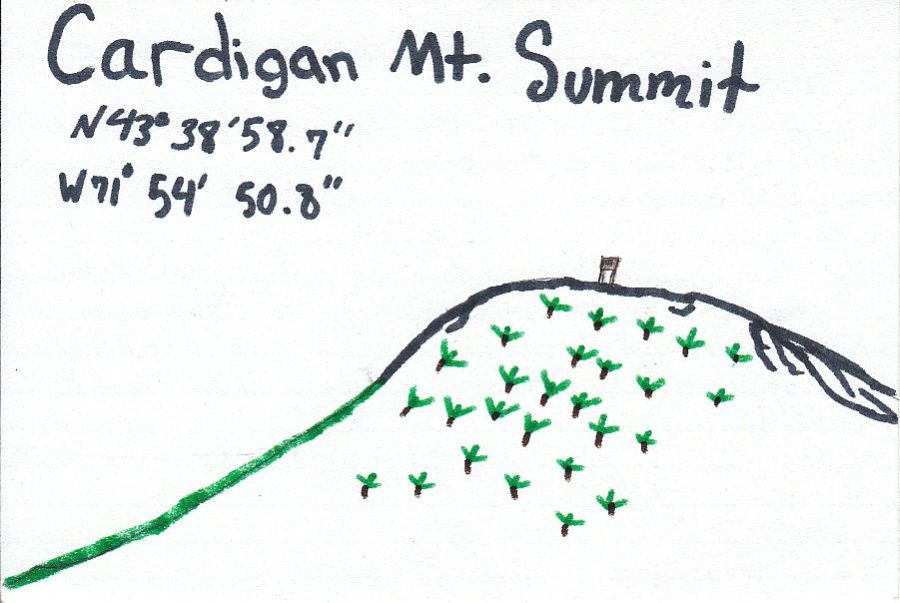 Cardigan Mt. Summit
N43° 38' 58.7"
W71° 54' 50.8"